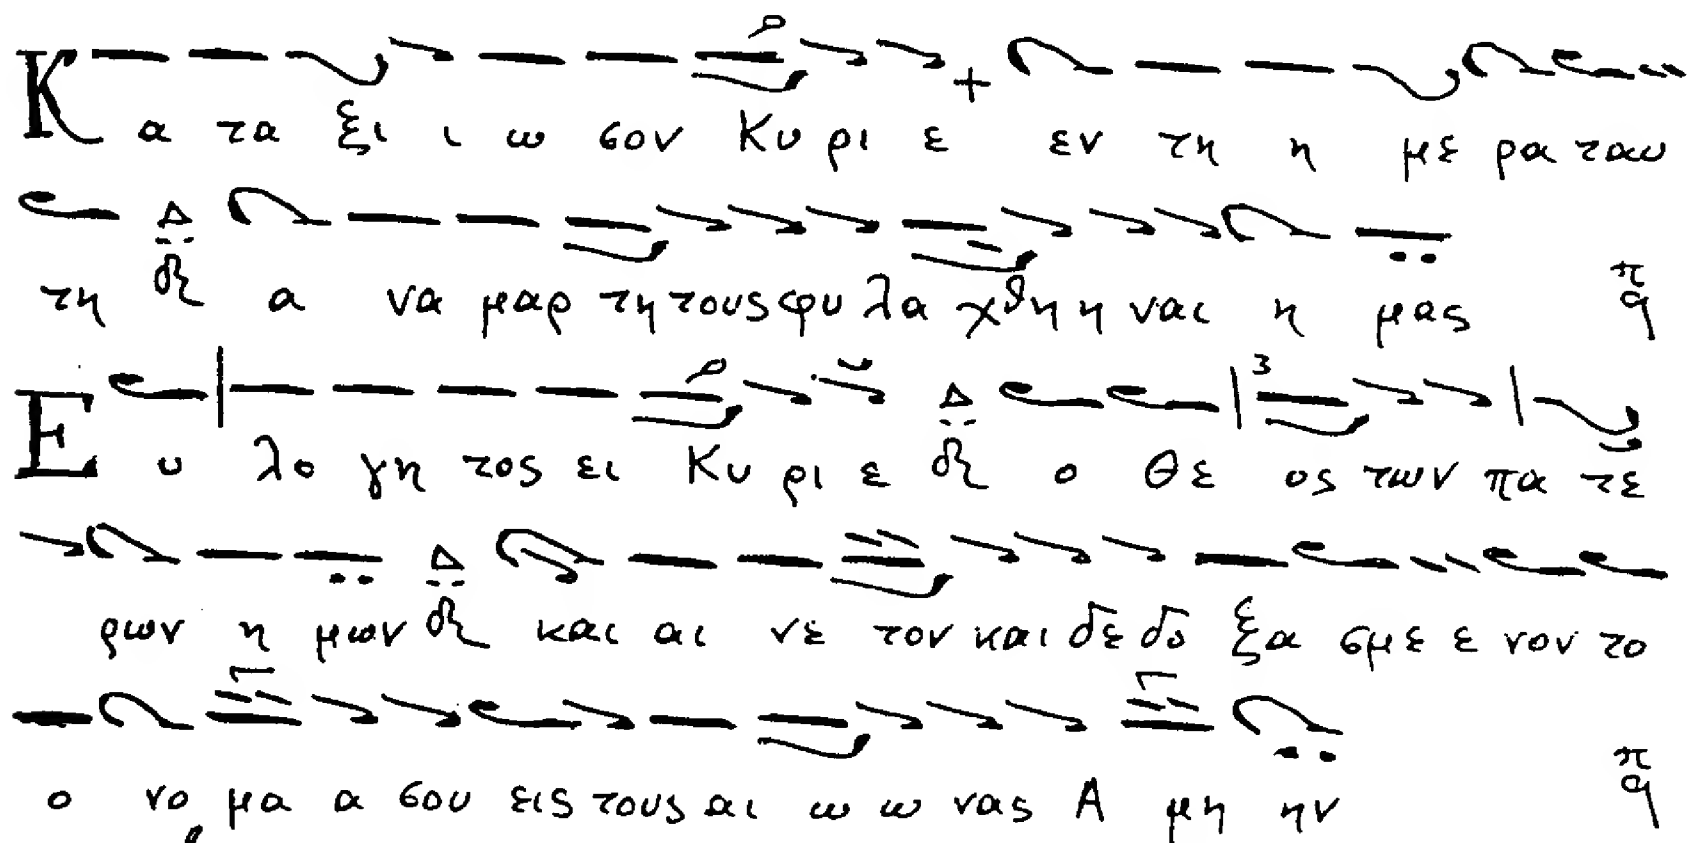 Κ α τα ξι ι ω σον Κυ ρι ε εν τη η με ρα ταυ
τη δι α να μαρ τη τους φυ λα χθη η ναι η μας πα
Ε υ λο γη τος ει Κυ ρι ε δι ο Θε ος των πα τε
ρων η μων δι και αι νε τον και δε δο ξα σμε ε νον το
ο νο μα α σου εις τους αι ω ω νας Α μη ην πα